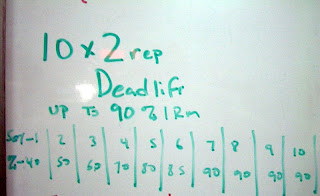 10 x 2 rep
Deadlift
UP TO 90 % 1RM
Set-1 | 2 | 3 | 4 | 5 | 6 | 7 | 8 | 9 | 10
%-40 | 50 | 60 | 70 | 80 | 85 | 90 | 90 | 90 | 90